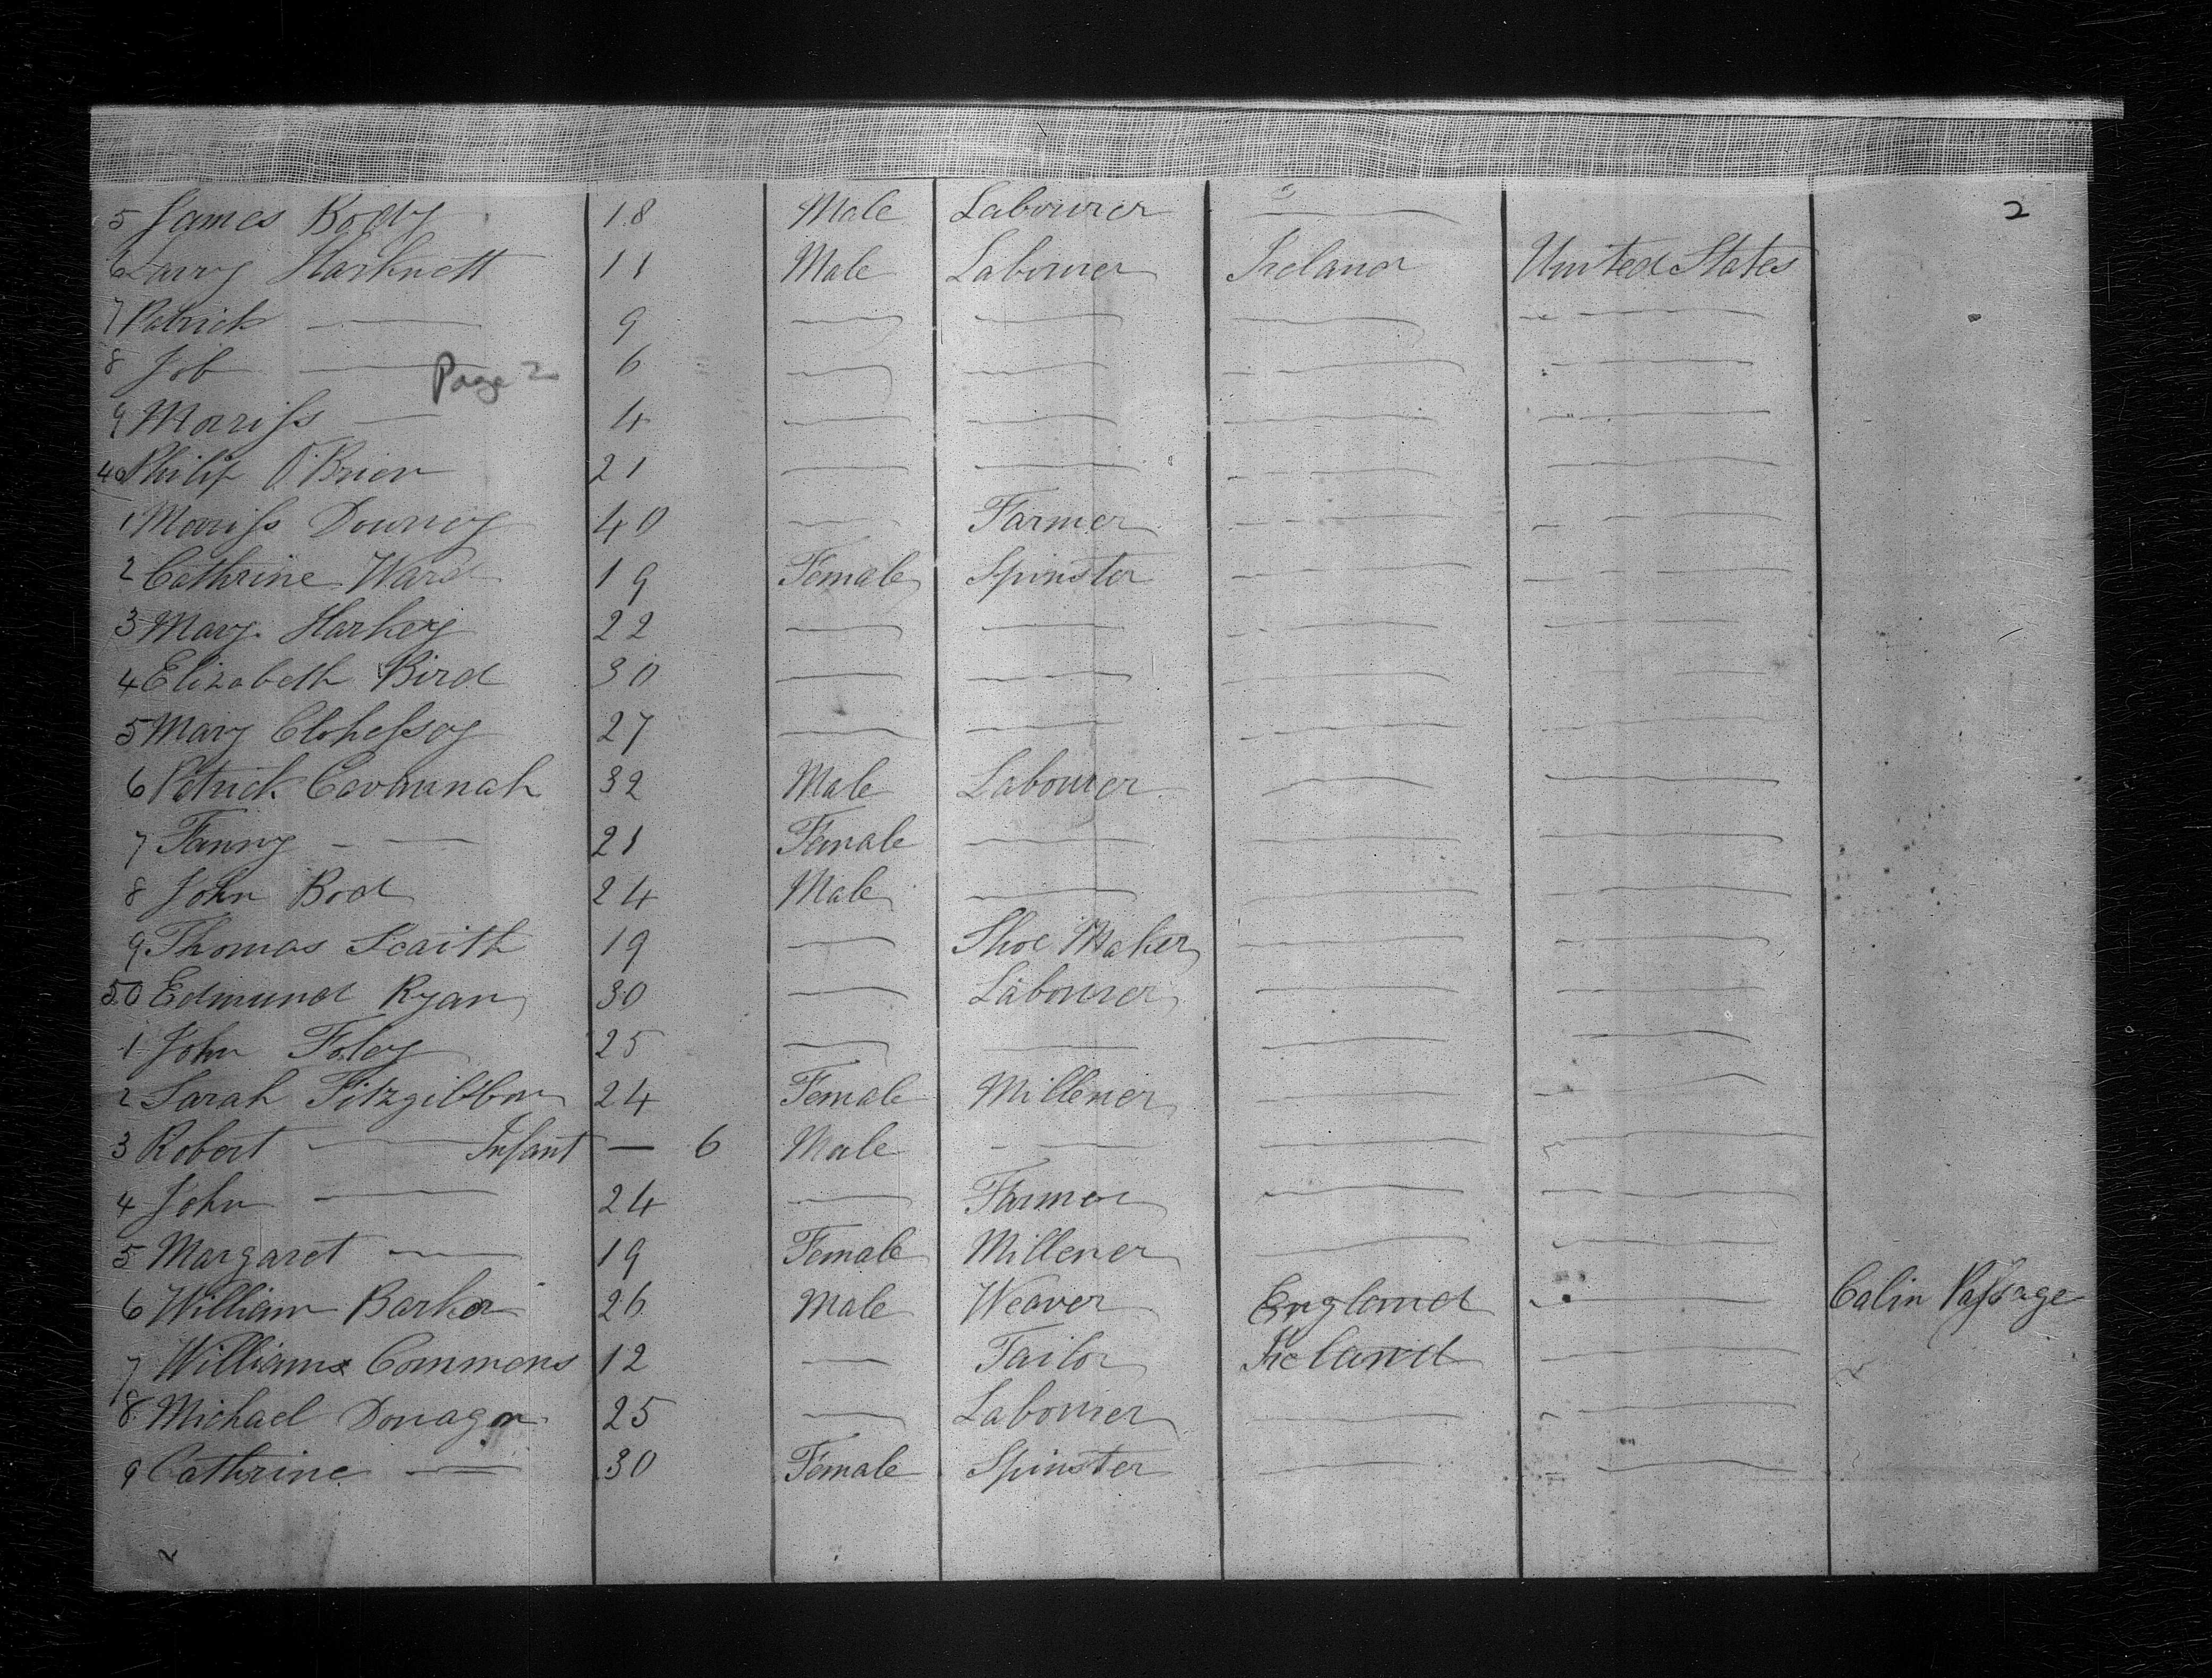 2
5 James Body 18 Male Labourer —
6 Larry Harknett 11 Male Labourer Ireland United States
7 Patrick — 9 — — — —
8 Job — 6 — — — —
Page 2
9 Moriss — 4 — — — —
40 Philip O'Brien 21 — — — —
1 Moriss Downey 40 — Farmer — —
2 Cathrine Ward 19 Female Spinster — —
3 Mary Harkey 22 — — — —
4 Elizabeth Bird 30 — — — —
5 Mary Clohessey 27 — — — —
6 Patrick Cavaunah 32 Male Labourer — —
7 Fanny — 21 Female — — —
8 John Bod 24 Male — — —
9 Thomas Scaith 19 — Shoe Maker — —
50 Edmund Ryan 30 — Labourer — —
1 John Foley 25 — — — —
2 Sarah Fitzgibbon 24 Female Millener — —
3 Robert — Infant — 6 Male — — —
4 John — 24 — Farmer — —
5 Margaret — 19 Female Millener — —
6 William Barker 26 Male Weaver England — Cabin Passage
7 Williams Commons 12 — Tailor Ireland —
8 Michael Donagon 25 — Labourer — —
9 Cathrine — 30 Female Spinster — —